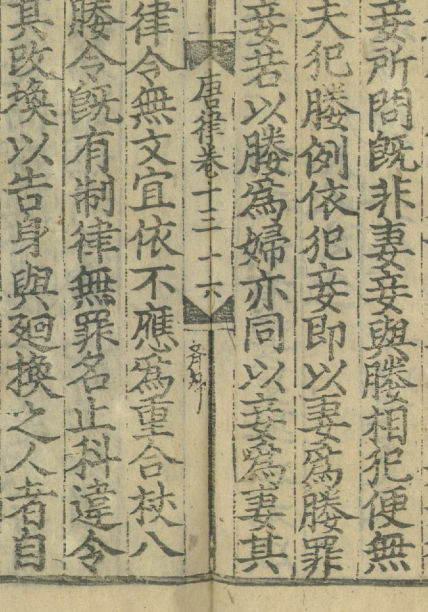 妾所問既非妻妾與媵相犯便無
夫犯媵例依犯妾即以妻爲媵罪
妾若以媵爲婦亦同以妾爲妻其
唐律卷十三 十六
律令無文宜依不應爲重合杖八
媵令既有制律無罪名止科違令
其改換以告身與廻換之人者自